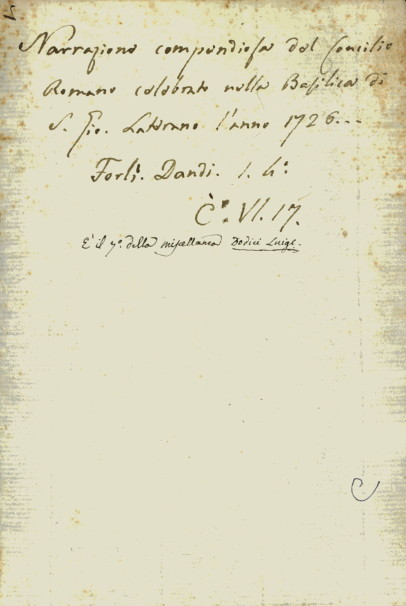 Narrazione compendiosa del Concilio
Romano celebrato nella Basilica di
S. Gio. Laterano l'anno 1726...
Forlì. Dandi. 1. 4°.
È. VI. 17.
È il 7°. della miscellanea Dodici Luigi.